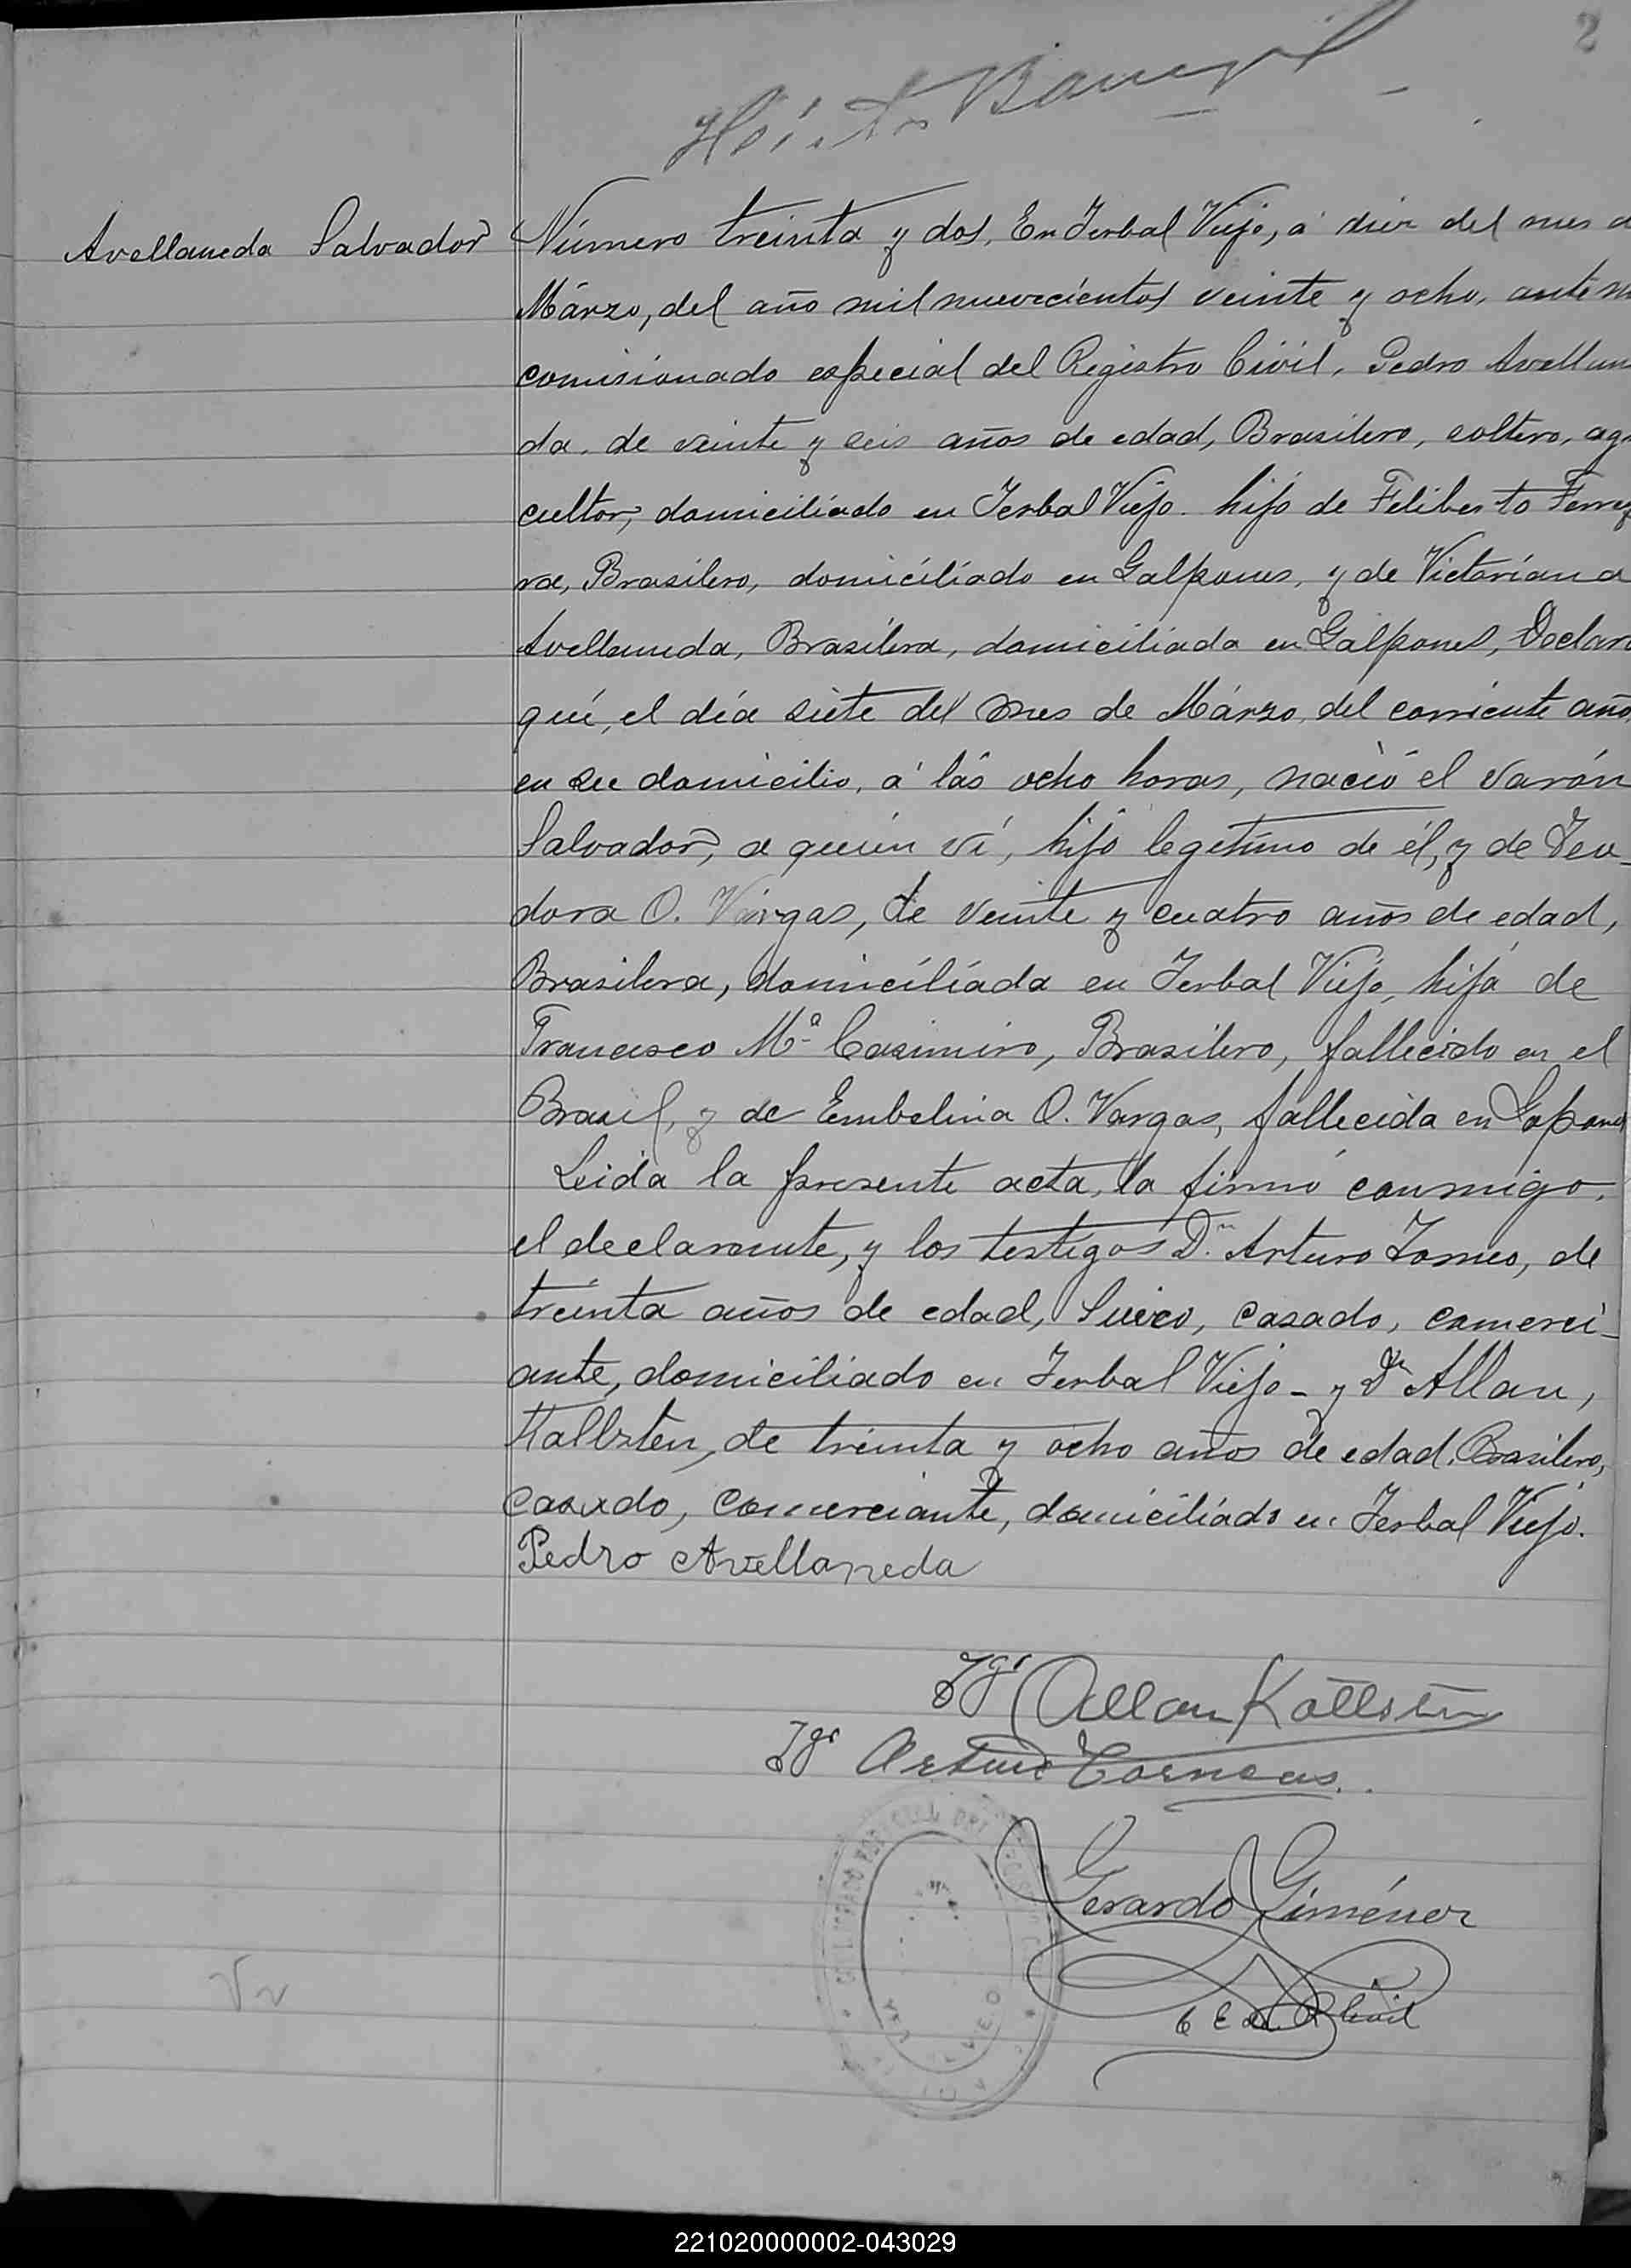 2
Avellaneda Salvador
Número treinta y dos, En Yerbal Viejo, á diez del mes d
Márzo, del año mil nuevecientos veinte y ocho, ante m
comisionado especial del Registro Civil, Pedro Avellan
da, de veinte y seis años de edad, Brasilero, soltero, ag
cultor, domiciliado en Yerbal Viejo. hijo de Feliberto Ferrey
ra, Brasilero, domiciliado en Galpones, y de Victoriana
Avellaneda, Brasilera, domiciliada en Galpones, Declar
qué, el día siete del mes de Márzo, del corriente año,
en su domicilio, á lás ocho horas, nació el varón
Salvador, a quién ví, hijo legítimo de él, y de Teo-
dora O. Vargas, de veinte y cuatro años de edad,
Brasilera, domiciliada en Yerbal Viejo, hija de
Francisco Mª Casimiro, Brasilero, fallecido en el
Brasil, y de Embelina O. Vargas, fallecida en
Leida la presente acta, la firmó conmigo,
el declarante, y los testigos Dn. Arturo de
treinta años de edad, Sueco, casado, comerci-
ante, domiciliado en Yerbal Viejo - y Dn Allan,
Kallsten, de treinta y ocho años de edad, Brasilero,
casado, comerciante, domiciliado en Yerbal Viejo.
Pedro Avellaneda
Tgo Allan Kallsten
Tgo Arturo
Gerardo Giménez
C E del R Civil
221020000002-043029